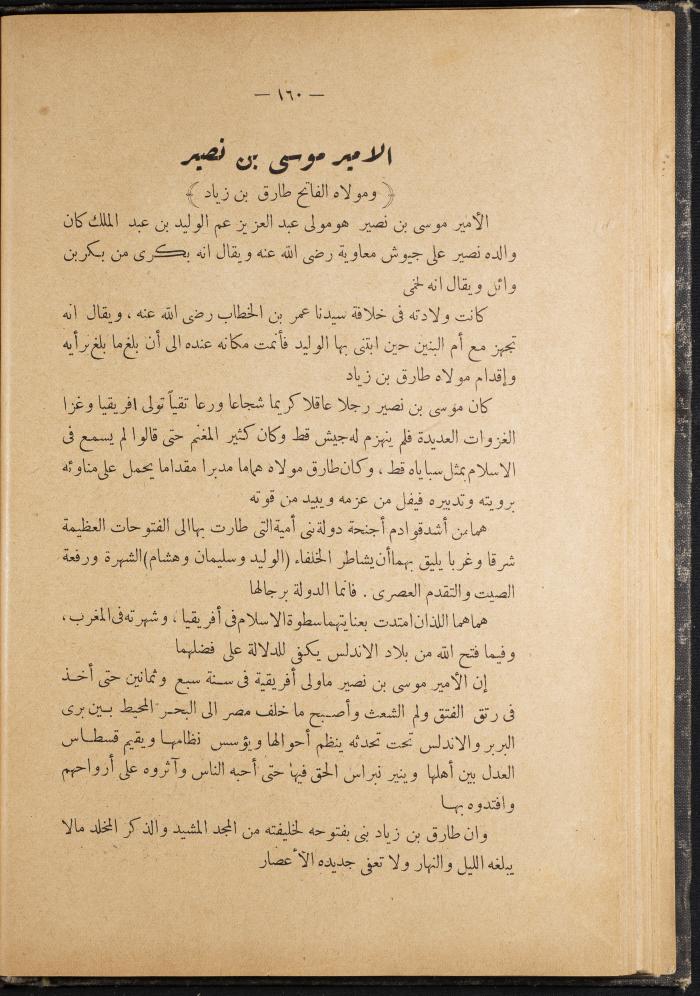 — ١٦٠ —
الامير موسى بن نصير
﴿ ومولاه الفاتح طارق بن زياد ﴾
الأمير موسى بن نصير هو مولى عبد العزيز عم الوليد بن عبد الملك كان
والده نصير على جيوش معاوية رضى الله عنه ويقال انه بكرى من بكر بن
وائل ويقال انه لخمى
كانت ولادته فى خلافة سيدنا عمر بن الخطاب رضى الله عنه ، ويقال انه
تجهز مع أم البنين حين ابتنى بها الوليد فأتمت مكانه عنده الى أن بلغ ما بلغ برأيه
وإقدام مولاه طارق بن زياد
كان موسى بن نصير رجلا عاقلا كريما شجاعا ورعا تقياً تولى افريقيا وغزا
الغزوات العديدة فلم ينهزم له جيش قط وكان كثير المغنم حتى قالوا لم يسمع فى
الاسلام بمثل سباياه قط ، وكان طارق مولاه هماما مدبرا مقداما يحمل على مناوئه
برويته وتدبيره فيفل من عزمه ويبيد من قوته
هما من أشد قوادم أجنحة دولة بنى أمية التى طارت بها الى الفتوحات العظيمة
شرقا وغربا يليق بهما أن يشاطر الخلفاء (الوليد وسليمان وهشام) الشهرة ورفعة
الصيت والتقدم العصرى . فانما الدولة برجالها
هما هما اللذان امتدت بعنايتهما سطوة الاسلام فى أفريقيا ، وشهرته فى المغرب ،
وفيما فتح الله من بلاد الاندلس يكفى للدلالة على فضلهما
إن الأمير موسى بن نصير ما ولى أفريقية فى سنة سبع وثمانين حتى أخذ
فى رتق الفتق ولم الشعث وأصبح ما خلف مصر الى البحر المحيط بين برى
البربر والاندلس تحت تحدثه ينظم أحوالها ويؤسس نظامها ويقيم قسطاس
العدل بين أهلها وينير نبراس الحق فيها حتى أحبه الناس وآثروه على أرواحهم
وافتدوه بها
وان طارق بن زياد بنى بفتوحه لخليفته من المجد المشيد والذكر المخلد مالا
يبلغه الليل والنهار ولا تعفى جديده الأعصار